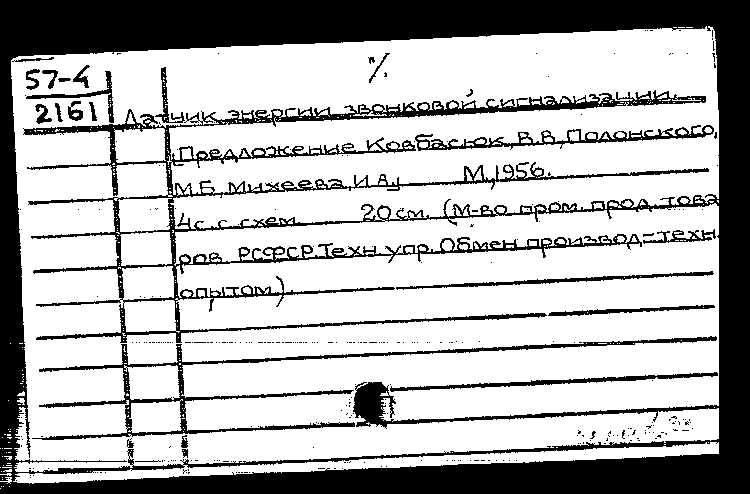 %
57-4
2161 Датчик энергии звонковой сигнализации.
Предложение Ковбасюк, В.В, Полонского,
М.Б, Михеева, И.А, М, 1956.
4с. с схем 20 см. (М-во пром. прод. това
ров РСФСР. Техн упр. Обмен производ-техн.
опытом).